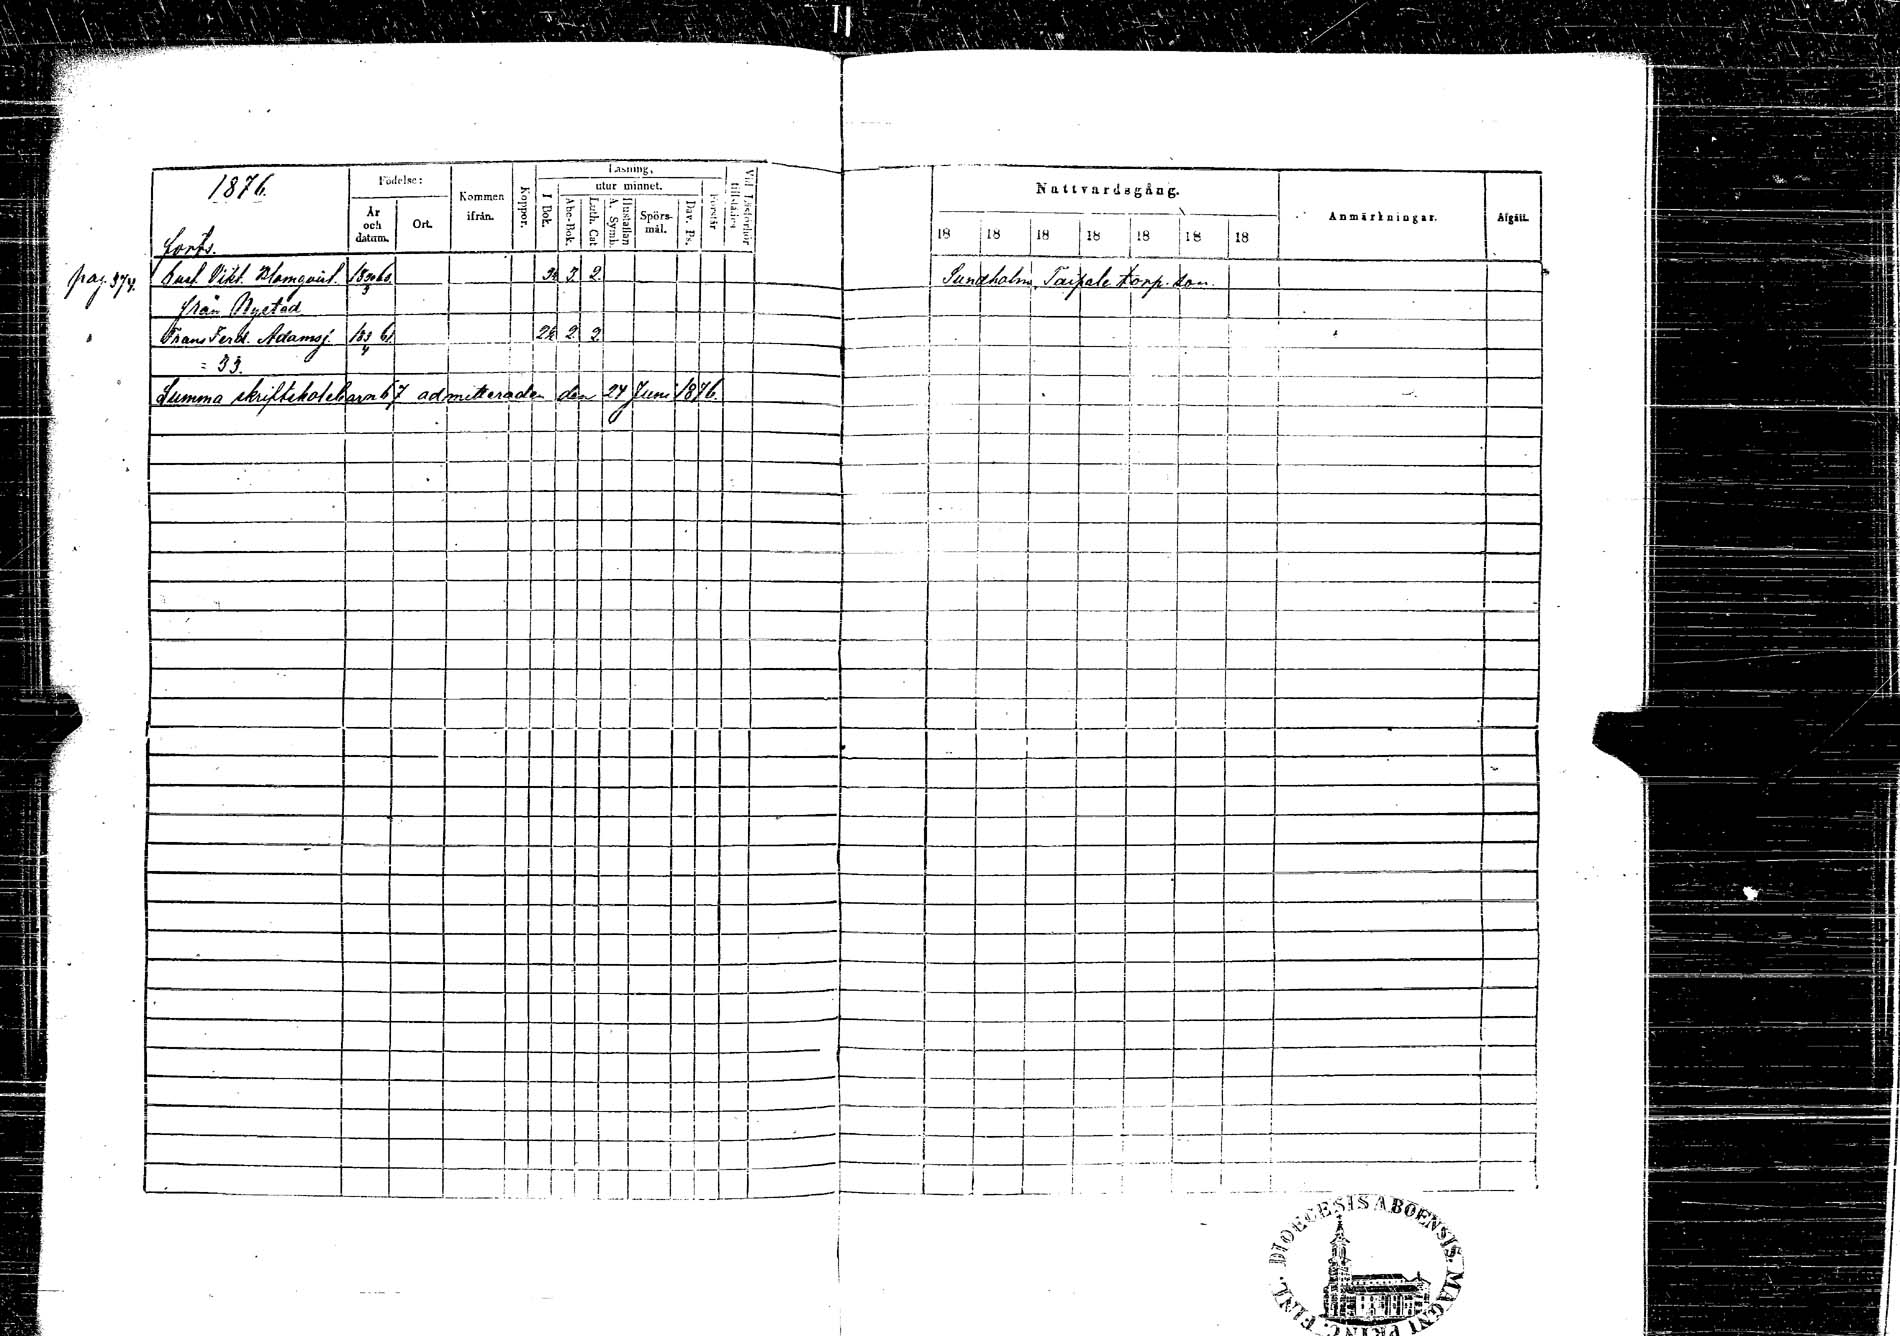 1876.
Forts.
Födelse:
År och datum.
Ort.
Kommen ifrån.
Koppor.
Läsning,
I Bok.
utur minnet.
Abc-Bok.
Luth. Cat
Hustaflan A. Symb.
Spörsmål.
Dav. Ps.
Förstår
Vid Läsförhör tillstädes
Nattvardsgång.
18 18 18 18 18 18 18
Anmärkningar.
Afgått.
pag. 374. Carl Vikt. Blomqvist. 18 30/3 60. 3 2. Sundholm Taipale torp. son.
från Nystad
Frans Ferd. Adamsj. 18 3/4 61. 2 2
= 33.
Summa skriftskolebarn 67 admitterades den 24 Juni 1876.
DIOECESIS ABOENSIS. MAGNI PRINC. FINL.